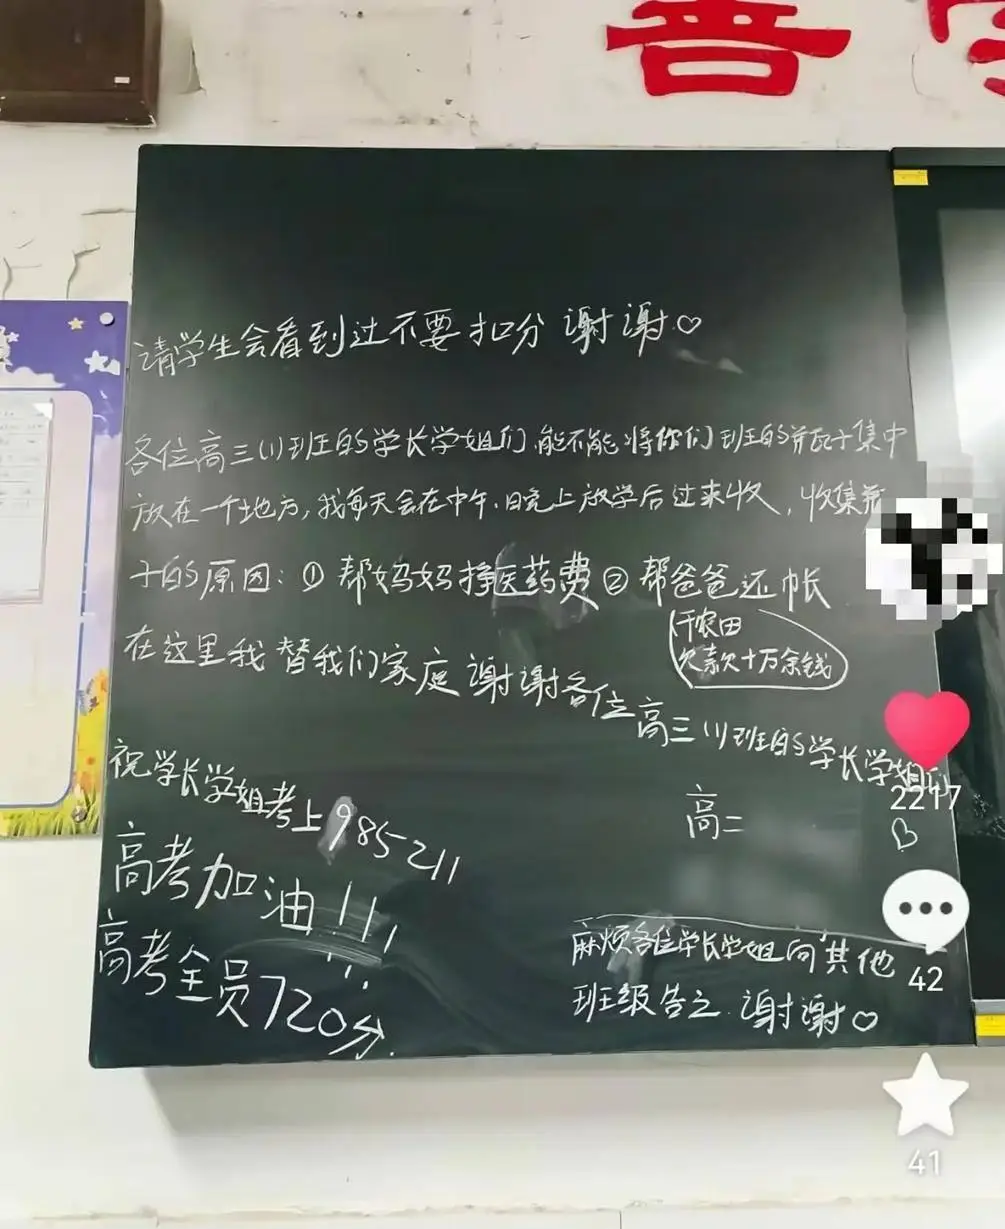 请学生会看到过不要扣分 谢谢♡
各位高三(1)班的学长学姐们,能不能将你们班的瓶子集中
放在一个地方,我每天会在中午、晚上放学后过来收,收集瓶
子的原因:① 帮妈妈挣医药费② 帮爸爸还帐
农田
欠款十万余钱
在这里我替我们家庭谢谢各位高三(1)班的学长学姐们
高二
祝学长学姐考上985 211
高考加油!!!
高考全员720分.
麻烦各位学长学姐向其他
班级告之.谢谢♡
2217
42
41